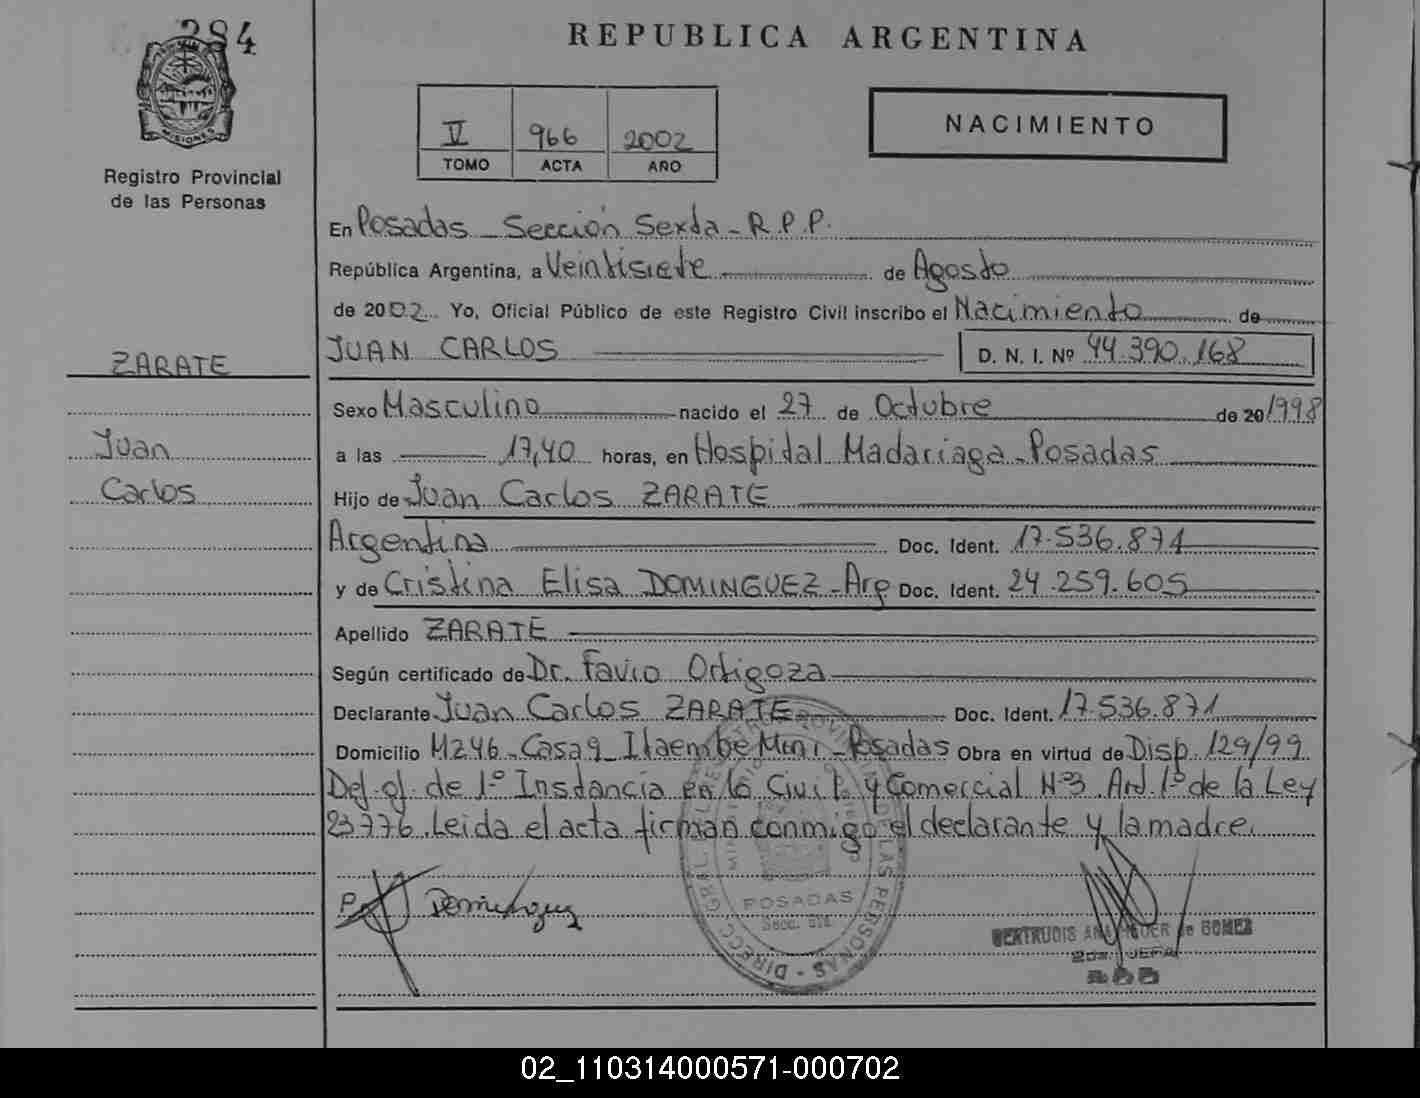 284
MISIONES
Registro Provincial
de las Personas
REPUBLICA ARGENTINA
V 966 2002
TOMO ACTA AÑO
NACIMIENTO
En Posadas - Sección Sexta - R.P.P.
República Argentina, a Veintisiete de Agosto
de 2002 Yo, Oficial Público de este Registro Civil inscribo el Nacimiento de
JUAN CARLOS D. N. I. Nº 44.390.168
ZARATE
Sexo Masculino nacido el 27 de Octubre de 20 1998
Juan
a las 17,40 horas, en Hospital Madariaga - Posadas
Carlos
Hijo de Juan Carlos ZARATE
Argentina Doc. Ident. 17.536.871
y de Cristina Elisa DOMINGUEZ - Arg Doc. Ident. 24.259.605
Apellido ZARATE
Según certificado de Dr. Favio Ortigoza
Declarante Juan Carlos ZARATE Doc. Ident. 17.536.871
Domicilio Mz 46 - Casa 9 - Itaembe Mini - Posadas Obra en virtud de Disp. 129/99
Def. of. de 1º Instancia en lo Civil y Comercial Nº3. Art. 1º de la Ley
23776. Leida el acta firman conmigo el declarante y la madre.
Dominguez
POSADAS
Secc. 6ta.
DE LAS PERSONAS - DIRECC. GRAL.
GERTRUDIS de GOMEZ
2da. JEFA
02_110314000571-000702